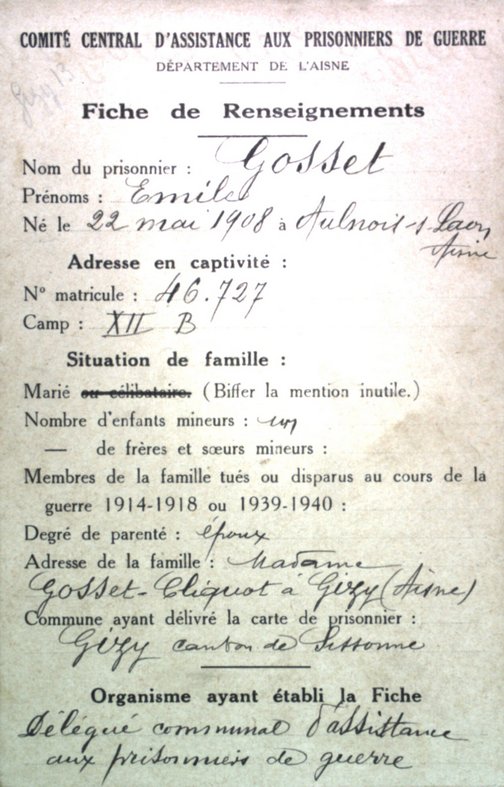 COMITÉ CENTRAL D'ASSISTANCE AUX PRISONNIERS DE GUERRE
DÉPARTEMENT DE L'AISNE
Fiche de Renseignements
Nom du prisonnier : Gosset
Prénoms : Emile
Né le 22 mai 1908 à Aulnois-s-Laon
Aisne
Adresse en captivité :
N° matricule : 46.727
Camp : XII B
Situation de famille :
Marié ou célibataire. (Biffer la mention inutile.)
Nombre d'enfants mineurs : un
— de frères et sœurs mineurs :
Membres de la famille tués ou disparus au cours de la
guerre 1914-1918 ou 1939-1940 :
Degré de parenté : époux
Adresse de la famille : Madame
Gosset-Cliquot à Gizy (Aisne)
Commune ayant délivré la carte de prisonnier :
Gizy canton de Sissonne
Organisme ayant établi la Fiche
Délégué communal d'assistance
aux prisonniers de guerre